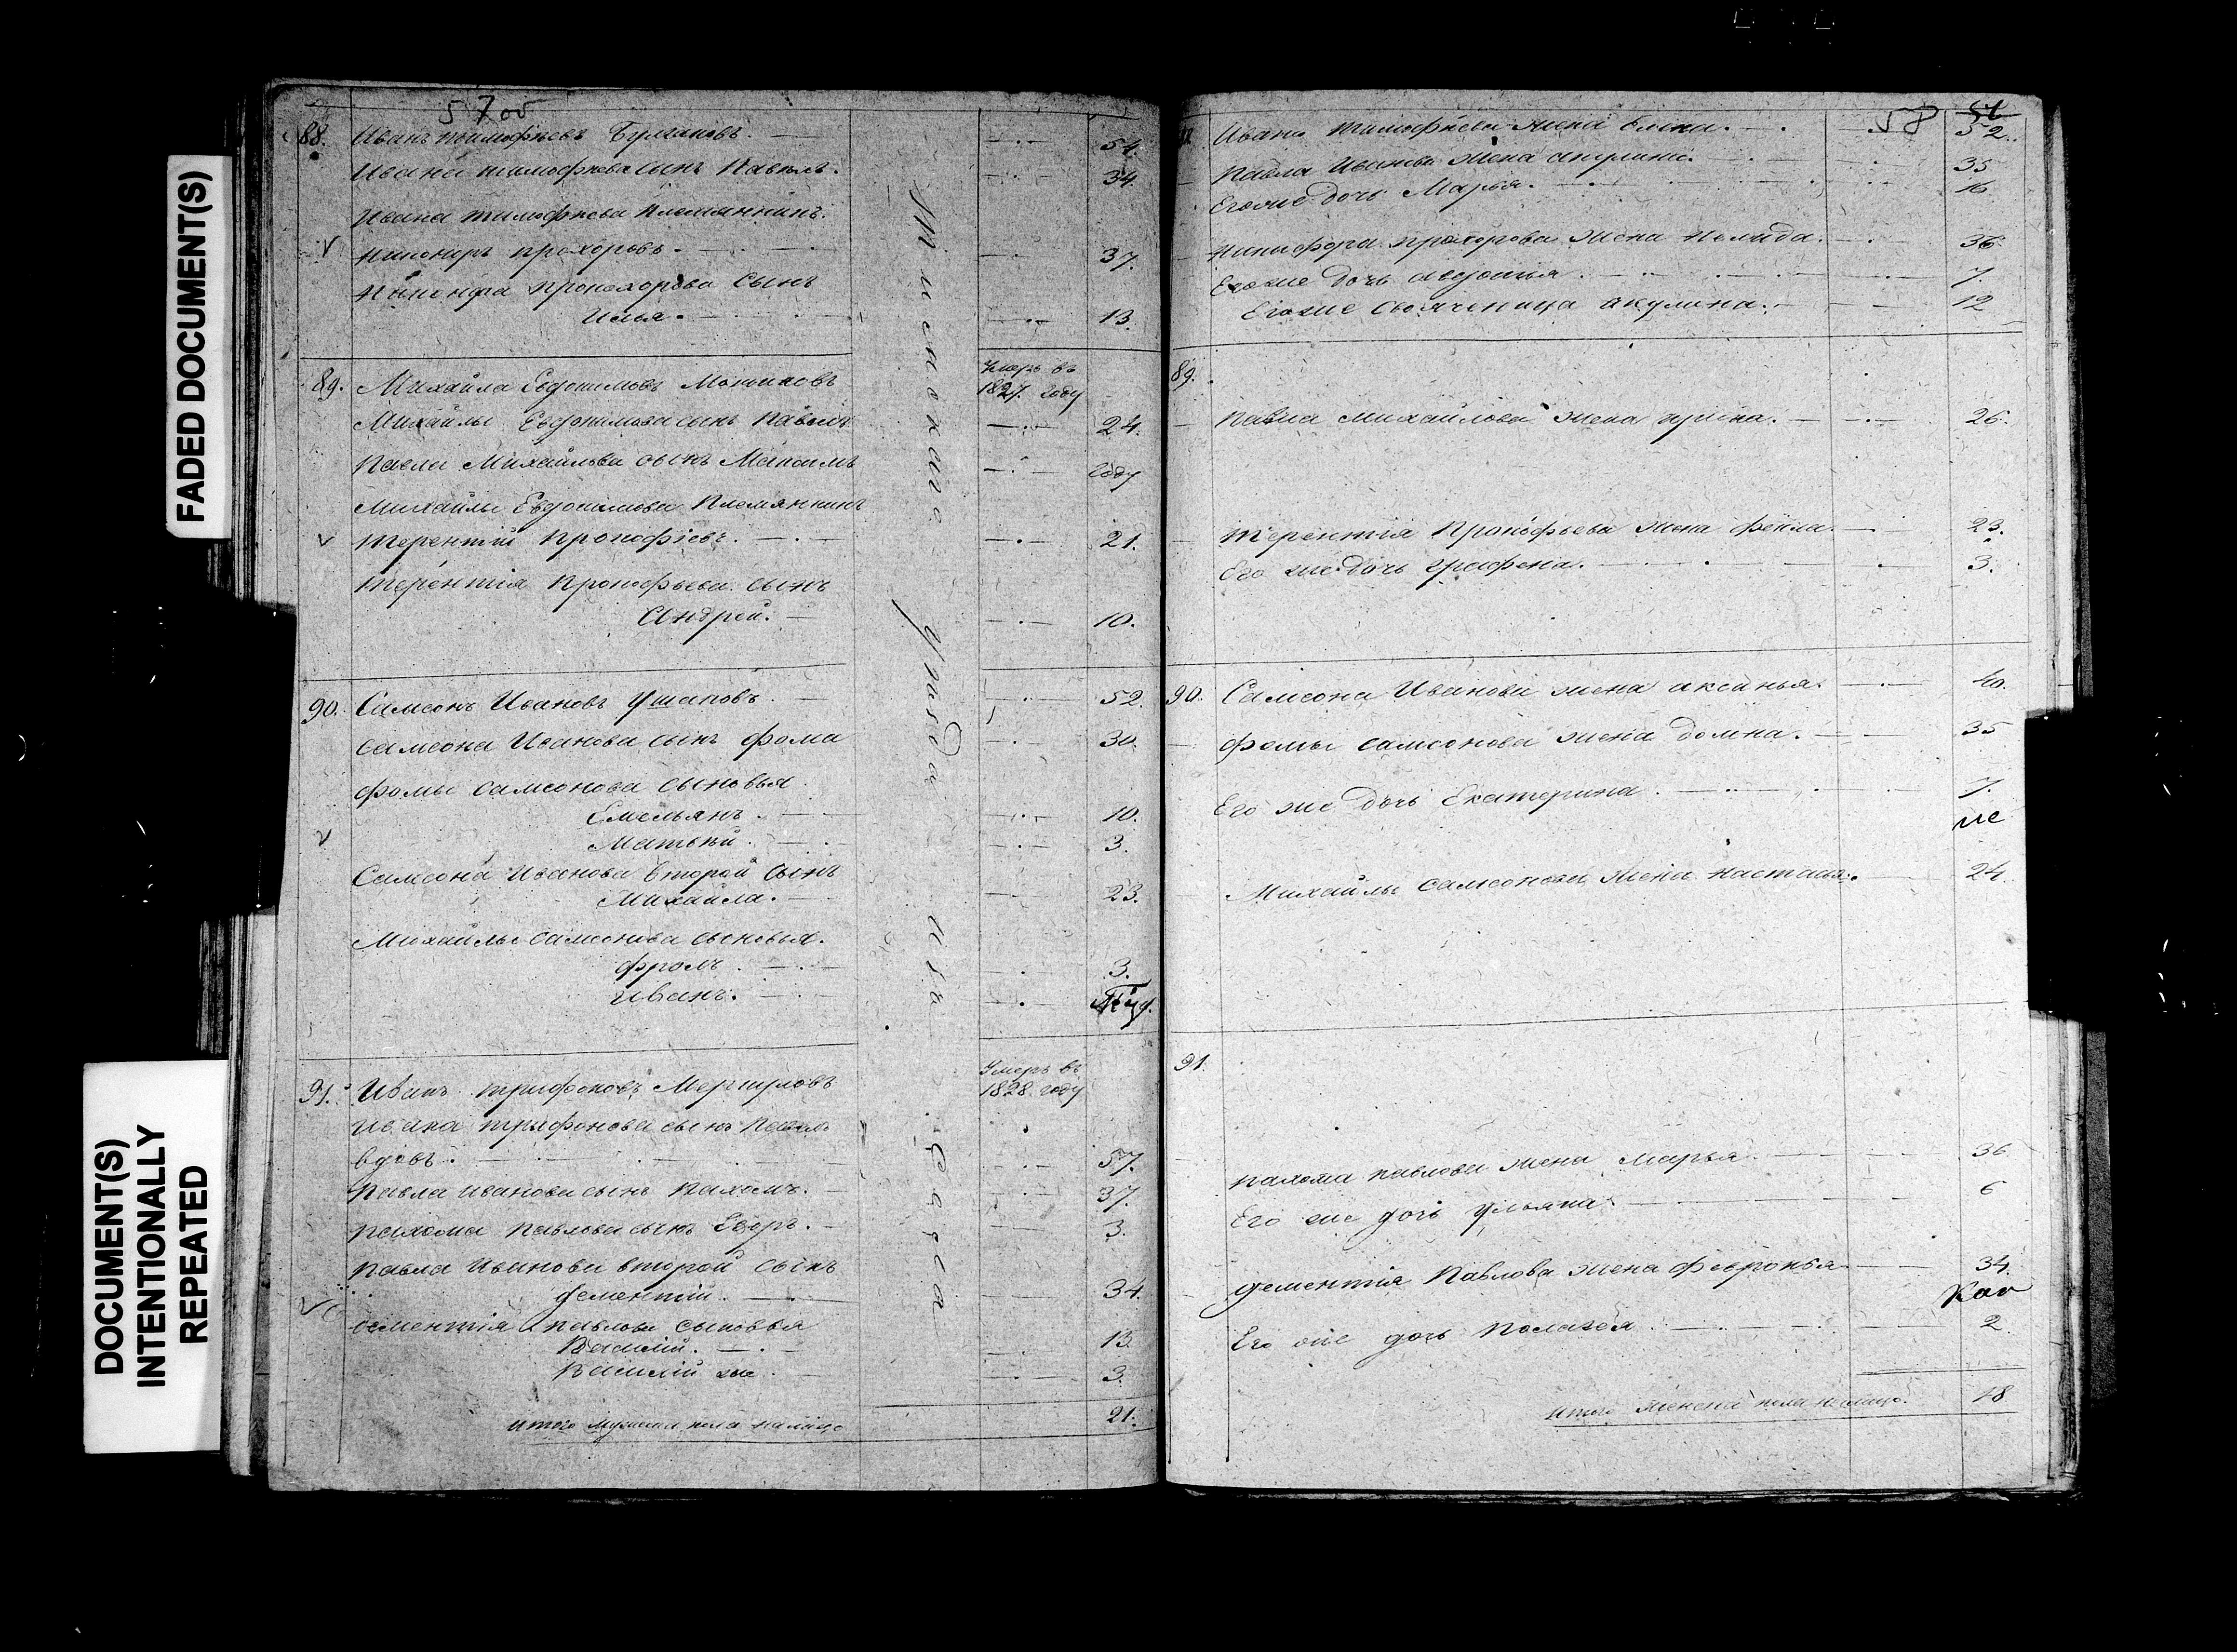 FADED DOCUMENT(S)
DOCUMENT(S)
INTENTIONALLY
REPEATED
57об
88. Иванъ тимофѣевъ 54.
Ивана тимофѣева сынъ Павелъ. 34.
Ивана тимофѣева племянникъ
прохоровъ. 37.
сынъ
Илья. 13.
89. Михайла Евдокимовъ умеръ въ
1827. году
Михайлы Евдокимова сынъ Павелъ 24.
Павла Михайлова сынъ Максимъ году
Михайлы Евдокимова племянникъ
терентій прокофіевъ. 21.
терентія прокофьева сынъ
Андрей. 10.
90. Самсонъ Ивановъ Ушаковъ. 52.
самсона Иванова сынъ фома 30.
фомы самсонова сыновья
Емельянъ. 10.
Матвѣй. 3.
Самсона Иванова второй сынъ
Михайла. 23.
Михайлы самсонова сыновья.
фролъ. 3.
иванъ.
91. Иванъ трифоновъ умеръ въ
1828 году
Ивана трифонова сынъ Павелъ
вдовъ. 57.
павла иванова сынъ пахомъ. 37.
пахома павлова сынъ Егоръ. 3.
павла Иванова второй сынъ
дементій. 34.
дементія павлова сыновья
Василій. 13.
Василій же. 3.
итого мужска пола налицо 21.
уѣзда
58
Ивана тимофѣева жена Елена. 52.
Павла Иванова жена акулина. 35
Егоже дочь Марья. 16
прохорова жена 36
Егоже дочь авдотья. 7.
Егоже свояченица акулина. 12
89.
Павла михайлова жена ирина. 26.
терентія прокофьева жена фекла. 23.
Его же дочь графена. 3.
90. Самсона Иванова жена аксинья. 40.
фомы самсонова жена домна. 35
Его же дочь Екатерина. 7.
Михайлы самсонова жена настасья. 24.
91.
пахома павлова жена марья. 36
Его же дочь ульяна. 6
дементія павлова жена февронья 34.
Его же дочь 2.
итого женска пола налицо. 18